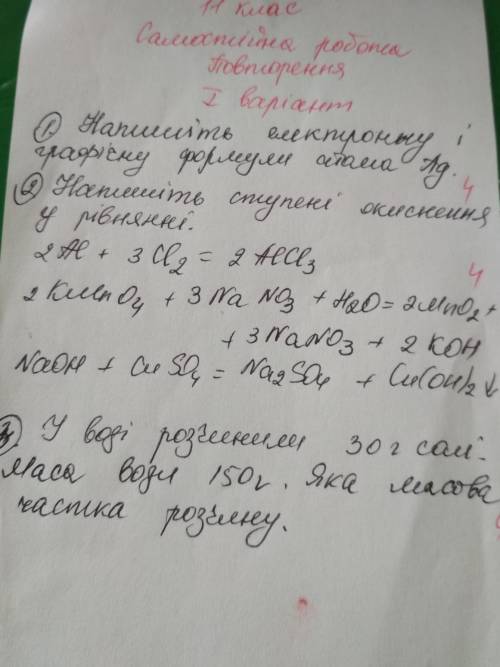 11 клас
Самостійна робота
Повторення
I варіант
1. Напишіть електронну і
графічну формули атома Ag.
4
2. Напишіть ступені окиснення
у рівнянні.
2Al + 3Cl₂ = 2AlCl₃
4
2KMnO₄ + 3NaNO₃ + H₂O = 2MnO₂ +
+ 3NaNO₃ + 2KOH
NaOH + CuSO₄ = Na₂SO₄ + Cu(OH)₂↓
3. У воді розчинили 30г солі.
Маса води 150г. Яка масова
частка розчину.